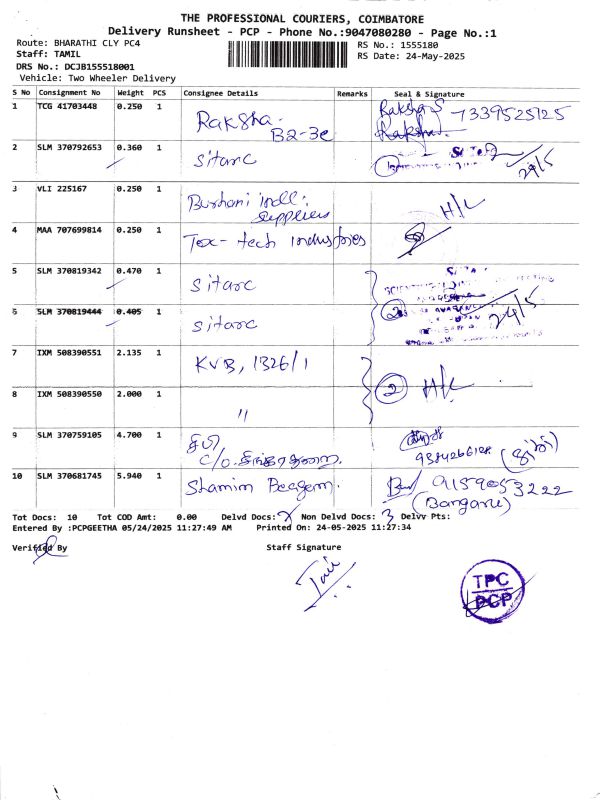 THE PROFESSIONAL COURIERS, COIMBATORE
Delivery Runsheet - PCP - Phone No.:9047080280 - Page No.:1
Route: BHARATHI CLY PC4
RS No.: 1555180
Staff: TAMIL
RS Date: 24-May-2025
DRS No.: DCJB155518001
Vehicle: Two Wheeler Delivery
S No Consignment No Weight PCS Consignee Details Remarks Seal & Signature
1 TCG 41703448 0.250 1 Raksha. B2-3e Raksha S 7339525125
Raksha.
2 SLM 370792653 0.360 1 Sitarc 24/5
3 VLI 225167 0.250 1 Burhani indl: H/L
Suppliers
4 MAA 707699814 0.250 1 Tex-tech industries
5 SLM 370819342 0.470 1 Sitarc
6 SLM 370819444 0.405 1 Sitarc 2 24/5
7 IXM 508390551 2.135 1 KVB, 1326/1
8 IXM 508390550 2.000 1 " 2 H/L
9 SLM 370759105 4.700 1 C/o. 9384266128
10 SLM 370681745 5.940 1 Shamim Beagem. 9159053222
(Bangaru)
Tot Docs: 10 Tot COD Amt: 0.00 Delvd Docs: 7 Non Delvd Docs: 3 Delvv Pts:
Entered By :PCPGEETHA 05/24/2025 11:27:49 AM Printed On: 24-05-2025 11:27:34
Verified By Staff Signature
TPC
PCP